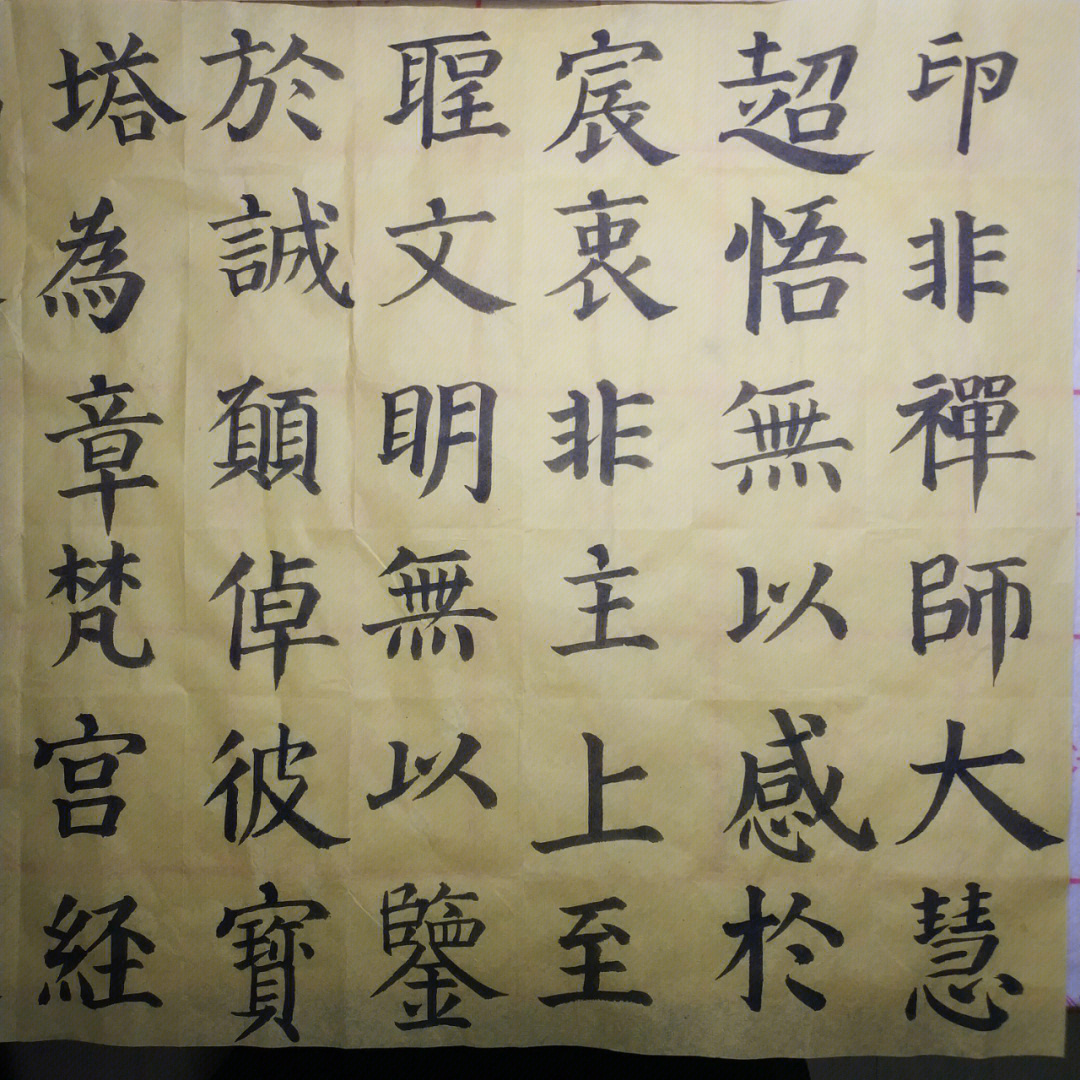 印非禪師大慧
超悟無以感於
宸衷非主上至
聖文明無以鑒
於誠願倬彼寶
塔為章梵宫経